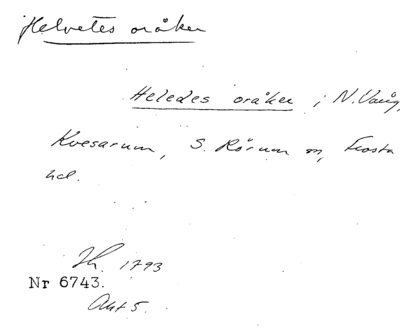 Helvetes oråker
Heledes oråker i N. Vång,
Kvesarum, S. Rörum sn, Frosta
hd.
Th. 1793
Nr 6743.
Akt 5.